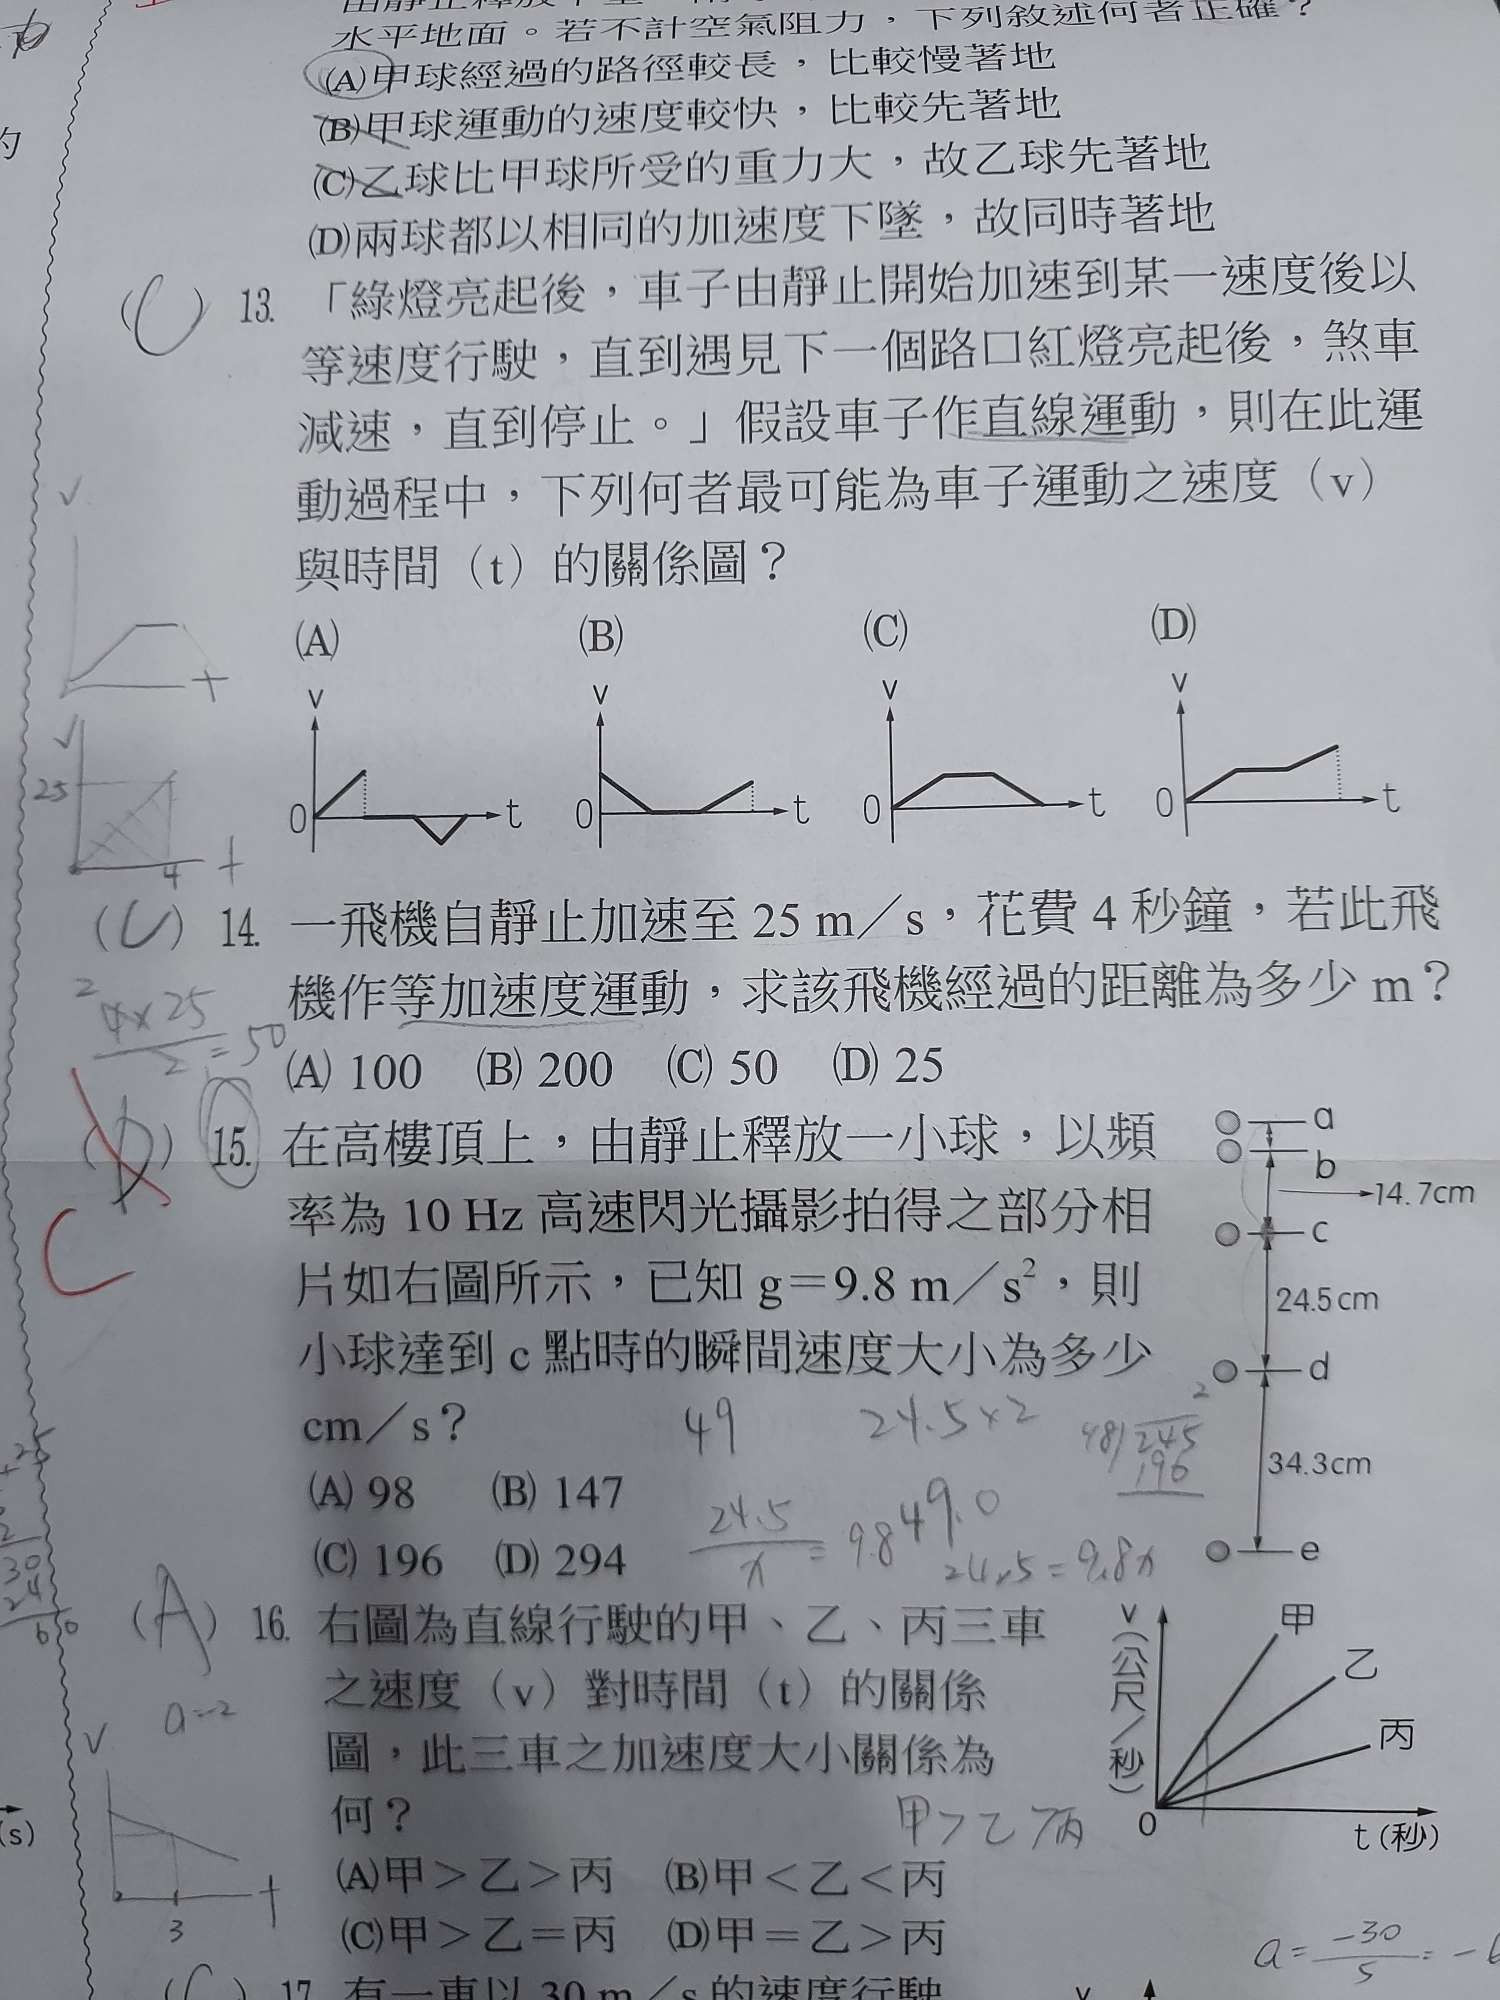 水平地面。若不計空氣阻力，下列敘述何者正確？
(A)甲球經過的路徑較長，比較慢著地
(B)甲球運動的速度較快，比較先著地
(C)乙球比甲球所受的重力大，故乙球先著地
(D)兩球都以相同的加速度下墜，故同時著地
(C) 13. 「綠燈亮起後，車子由靜止開始加速到某一速度後以
等速度行駛，直到遇見下一個路口紅燈亮起後，煞車
減速，直到停止。」假設車子作直線運動，則在此運
動過程中，下列何者最可能為車子運動之速度（v）
與時間（t）的關係圖？
v
t
(A) (B) (C) (D)
v v v v
0 t 0 t 0 t 0 t
v
25
4 t
(C) 14. 一飛機自靜止加速至 25 m／s，花費 4 秒鐘，若此飛
機作等加速度運動，求該飛機經過的距離為多少 m？
2
4×25
2 = 50
(A) 100 (B) 200 (C) 50 (D) 25
(D) 15. 在高樓頂上，由靜止釋放一小球，以頻
率為 10 Hz 高速閃光攝影拍得之部分相
片如右圖所示，已知 g＝9.8 m／s²，則
小球達到 c 點時的瞬間速度大小為多少
cm／s？
(A) 98 (B) 147
(C) 196 (D) 294
C
a
b
14.7cm
c
24.5cm
d
34.3cm
e
49 24.5×2
2
245
196
24.5
x = 9.8
49.0
24.5=9.8x
(A) 16. 右圖為直線行駛的甲、乙、丙三車
之速度（v）對時間（t）的關係
圖，此三車之加速度大小關係為
何？
甲>乙>丙
(A)甲＞乙＞丙 (B)甲＜乙＜丙
(C)甲＞乙＝丙 (D)甲＝乙＞丙
v(公尺／秒)
甲
乙
丙
0
t(秒)
a=-2
v
3
t
a = -30
5
(s)
(C) 17. 有一車以 30 m／s 的速度行駛
v